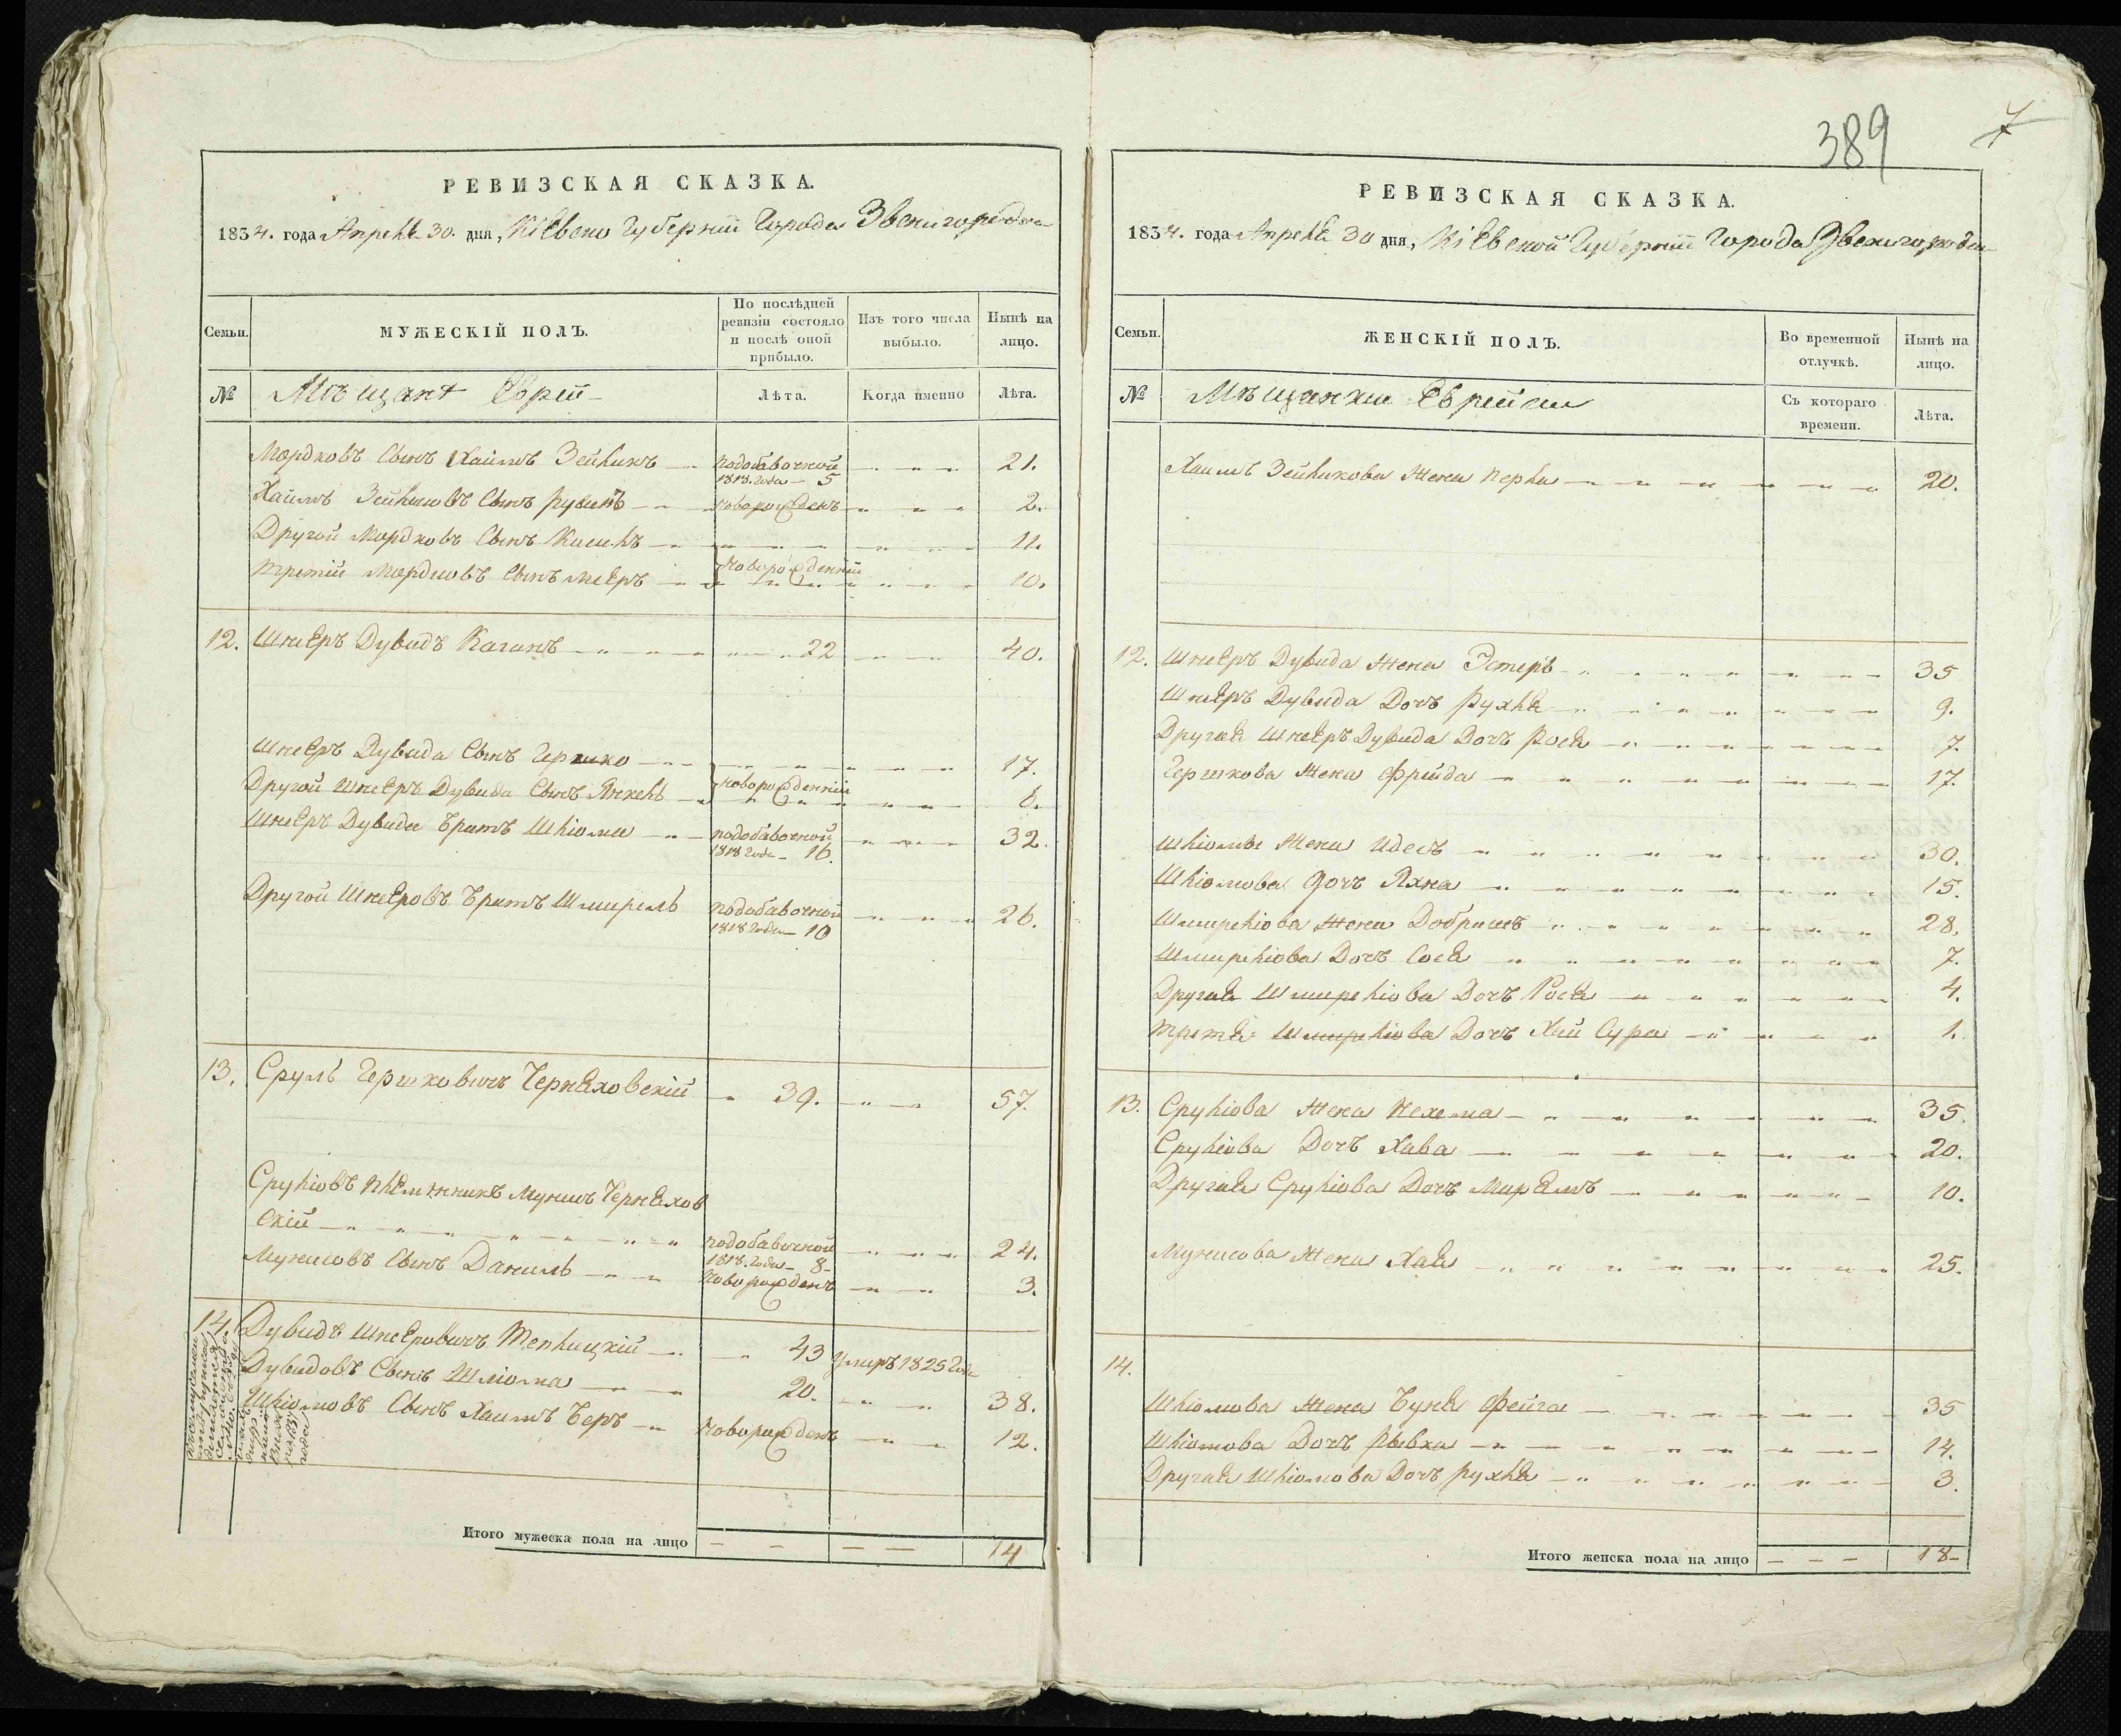 389
7
РЕВИЗСКАЯ СКАЗКА.
1834. года Апреля 30. дня, Кіевско Губерніи Города Звенигородки
Семьи.
МУЖЕСКІЙ ПОЛЪ.
По послѣдней ревизіи состояло и послѣ оной прибыло.
Изъ того числа выбыло.
Нынѣ на лицо.
№
Мѣщане Евреи
Лѣта.
Когда именно
Лѣта.
Мордковъ Сынъ Хаимъ Зейликъ подобавочной 1818. года 5 21.
Хаимъ Зейликовъ Сынъ Рувинъ новорожденъ 2.
Другой Мордковъ Сынъ 11.
новорожденніи
Третій Мордковъ Сынъ Меѣръ 10.
12. Шнеѣръ Дувидъ Каганъ 22 40.
Шнеѣръ Дувида Сынъ Гершко 17.
новорожденніи
Другой Шнеѣръ Дувида Сынъ Янкель
Шнеѣръ Дувида Братъ Шліома подобавочной 1818 года 16. 32.
Другой Шнеѣровъ Братъ Шмирель подобавочной 1818 года 10 26.
13. Сруль Гершковичъ Черняховскій 39. 57.
Сруліовъ племянникъ Мунишъ Черняхов
скій подобавочной 1818. года 8 24.
Мунишовъ Сынъ Даниль новорожденъ 3.
14. Дувидъ Шнеѣровичъ Теплицкій 43 Умиръ 1825 года
Дувидовъ Сынъ Шліома 20. 38.
Шліомовъ Сынъ Хаимъ Беръ новорожденъ 12.
Итого мужеска пола на лицо 14
РЕВИЗСКАЯ СКАЗКА.
1834. года Апреля 30 дня, Кіевской Губерніи Города Звенигородки
Семьи.
ЖЕНСКІЙ ПОЛЪ.
Во временной отлучкѣ.
Нынѣ на лицо.
№
Мѣщанки Еврейки
Съ котораго времени.
Лѣта.
Хаимъ Зейликова Жена Перля 20.
12. Шнеѣръ Дувида Жена Эстеръ 35
Шнеѣръ Дувида Дочь Рухля 9.
Другая Шнеѣръ Дувида Дочь Рося 7.
Гершкова Жена Фрейда 17.
Шліомы Жена Идесъ 30.
Шліомова Дочь Яхна 15.
Шмирліова Жена Добришъ 28.
Шмирліова Дочь Сося 7.
Другая Шмирліова Дочь Рося 4.
Третя Шмирліова Дочь Хая Сура 1.
13. Сруліова Жена Нехема 35.
Сруліова Дочь Хава 20.
Другая Сруліова Дочь Мирямъ 10.
Мунисова Жена Хая 25.
14.
Шліомова Жена Буня Фейга 35
Шліомова Дочь Рывка 14.
Другая Шліомова Дочь Рухля 3.
Итого женска пола на лицо 18